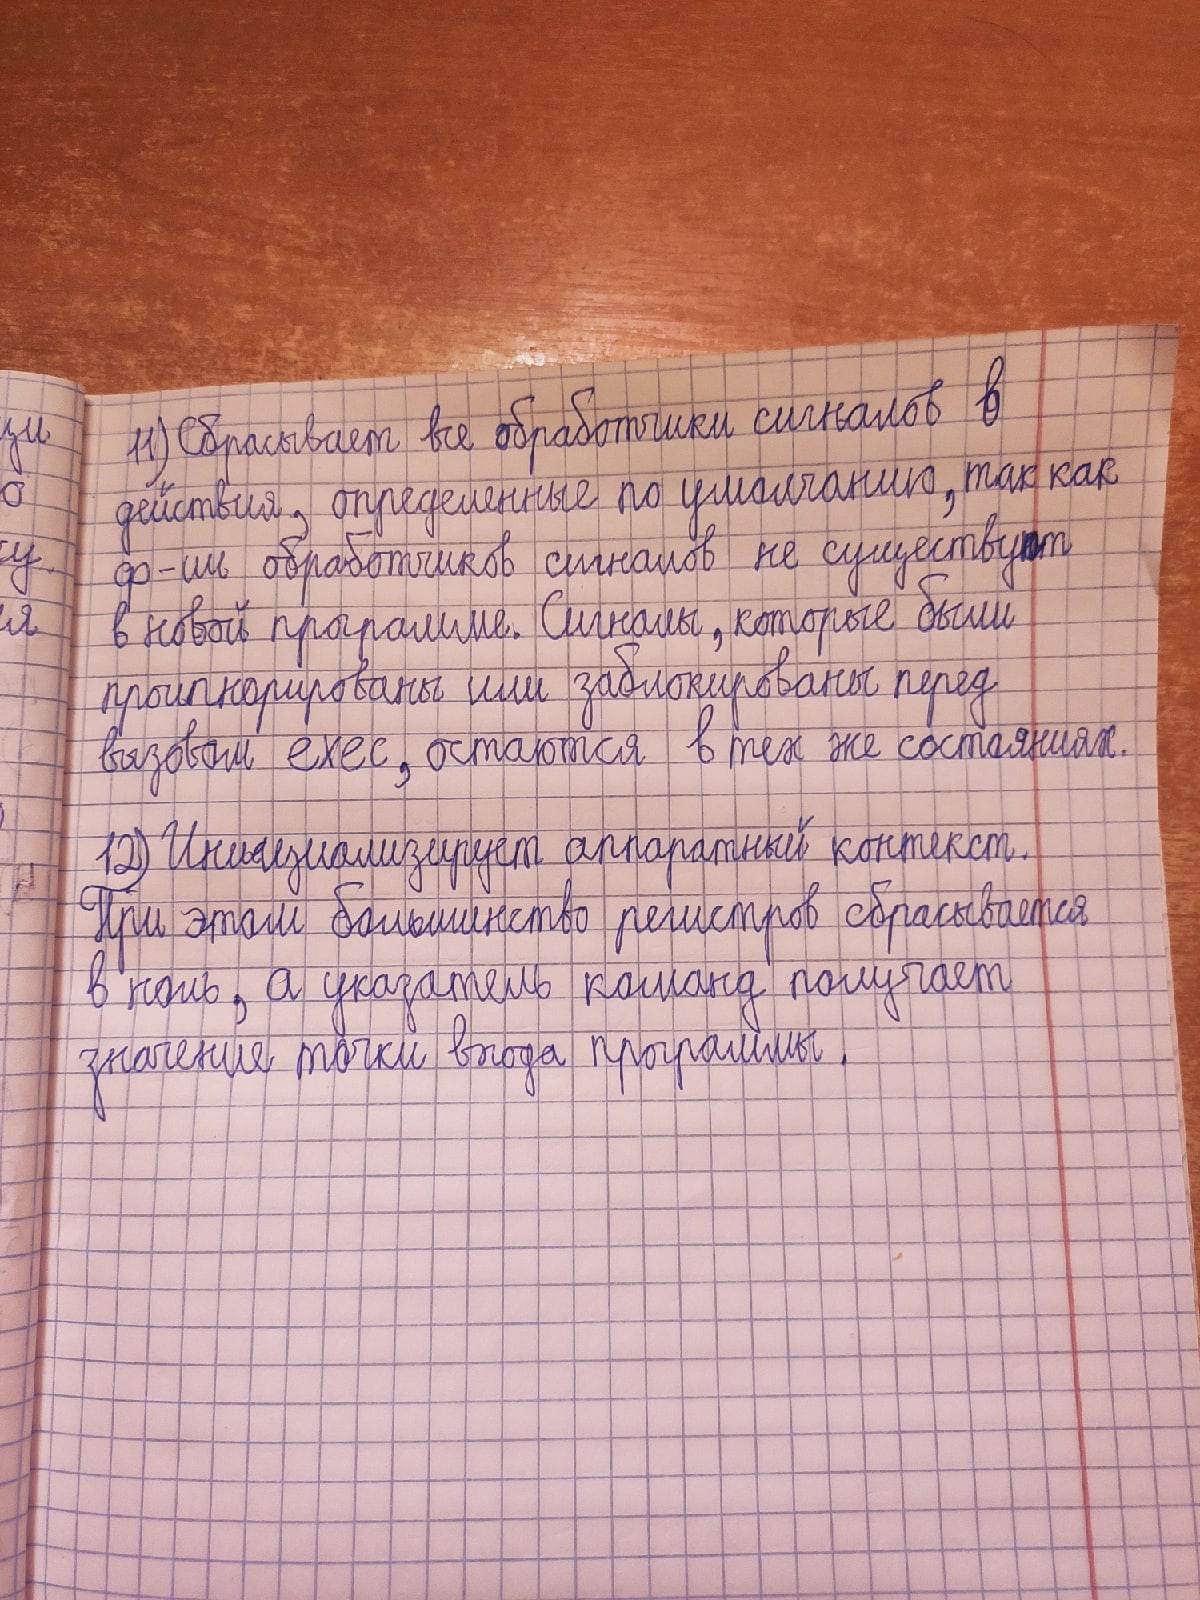 11) Сбрасывает все обработчики сигналов в
действия, определенные по умолчанию, так как
ф-ии обработчиков сигналов не существуют
в новой программе. Сигналы, которые были
проигнорированы или заблокированы перед
вызовом exec, остаются в тех же состояниях.
12) Инициализирует аппаратный контекст.
При этом большинство регистров сбрасывается
в ноль, а указатель команд получает
значение точки входа программы.